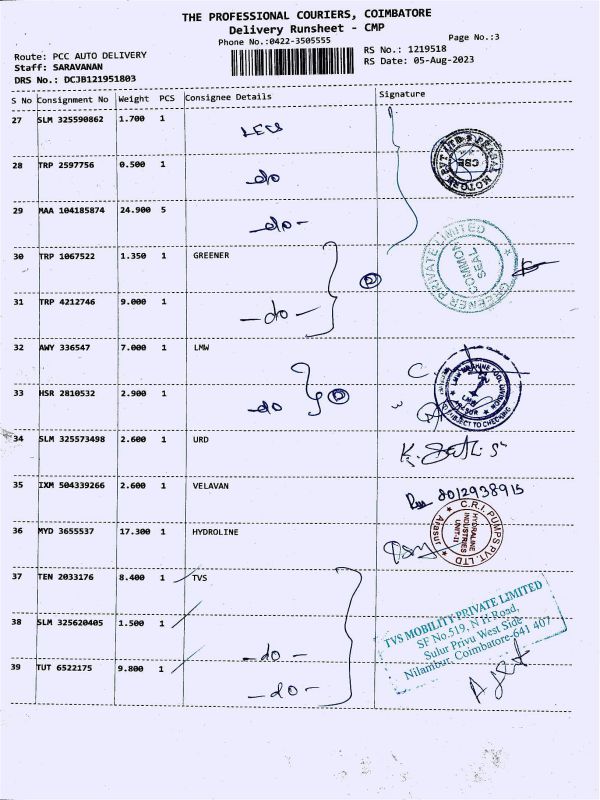 THE PROFESSIONAL COURIERS, COIMBATORE
Delivery Runsheet - CMP
Phone No.:0422-3505555
Page No.:3
Route: PCC AUTO DELIVERY
RS No.: 1219518
Staff: SARAVANAN
RS Date: 05-Aug-2023
DRS No.: DCJB121951803
S No Consignment No Weight PCS Consignee Details Signature
27 SLM 325590862 1.700 1
28 TRP 2597756 0.500 1 -do
29 MAA 104185874 24.900 5 -do-
30 TRP 1067522 1.350 1 GREENER
GREENER PRIVATE LIMITED
COMMON
SEAL
31 TRP 4212746 9.000 1 -do-
32 AWY 336547 7.000 1 LMW
33 HSR 2810532 2.900 1 -do
LMW
ARASUR
SUBJECT TO CHECKING
34 SLM 325573498 2.600 1 URD
35 IXM 504339266 2.600 1 VELAVAN
8012938915
36 MYD 3655537 17.300 1 HYDROLINE
C.R.I. PUMPS PVT. LTD
HYDRALINE
INDUSTRIES
UNIT-II
Arasur
37 TEN 2033176 8.400 1 TVS
38 SLM 325620405 1.500 1 -do-
39 TUT 6522175 9.800 1 -do-
TVS MOBILITY PRIVATE LIMITED
SF No.519, N H Road,
Sulur Privu West Side
Nilambur, Coimbatore-641 407